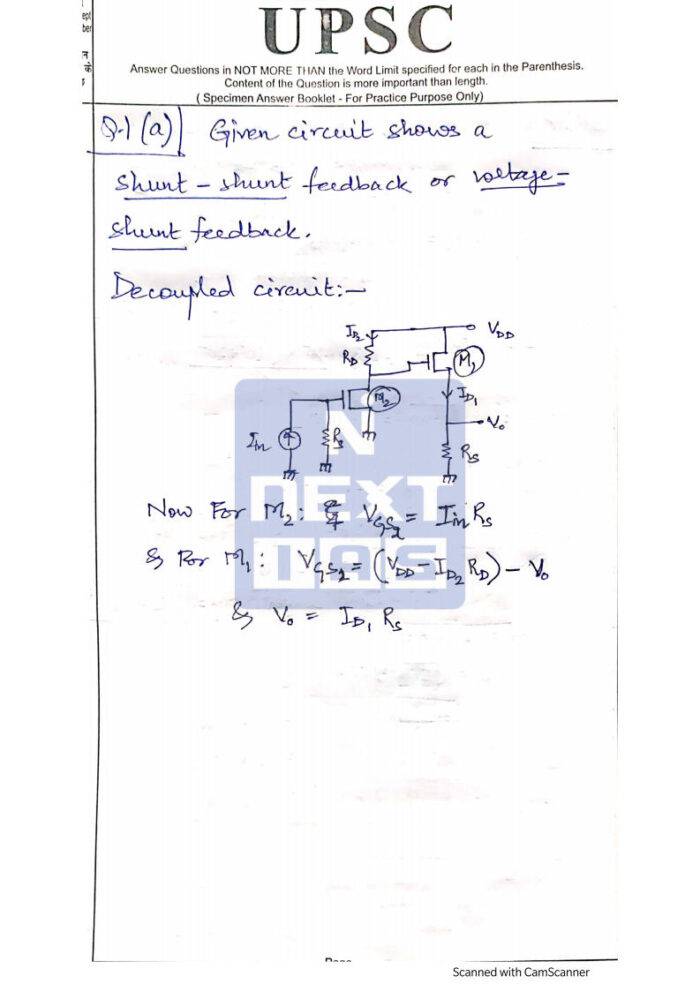 ept
ber
न
के
UPSC
Answer Questions in NOT MORE THAN the Word Limit specified for each in the Parenthesis.
Content of the Question is more important than length.
( Specimen Answer Booklet - For Practice Purpose Only)
Q.1 (a) Given circuit shows a
shunt - shunt feedback or voltage-
shunt feedback.
Decoupled circuit:-
I_D2 V_DD
R_D M_1
M_2 I_D1
V_o
I_in R_s R_s
N
NEXT
IAS
Now For M_2: V_GS2 = I_in R_s
& For M_1: V_GS2 = (V_DD - I_D2 R_D) - V_o
& V_o = I_D1 R_s
Scanned with CamScanner